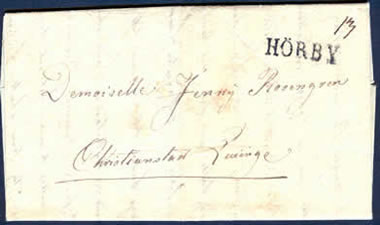 13
HÖRBY
Demoiselle Jenny Rosengren
Christianstad